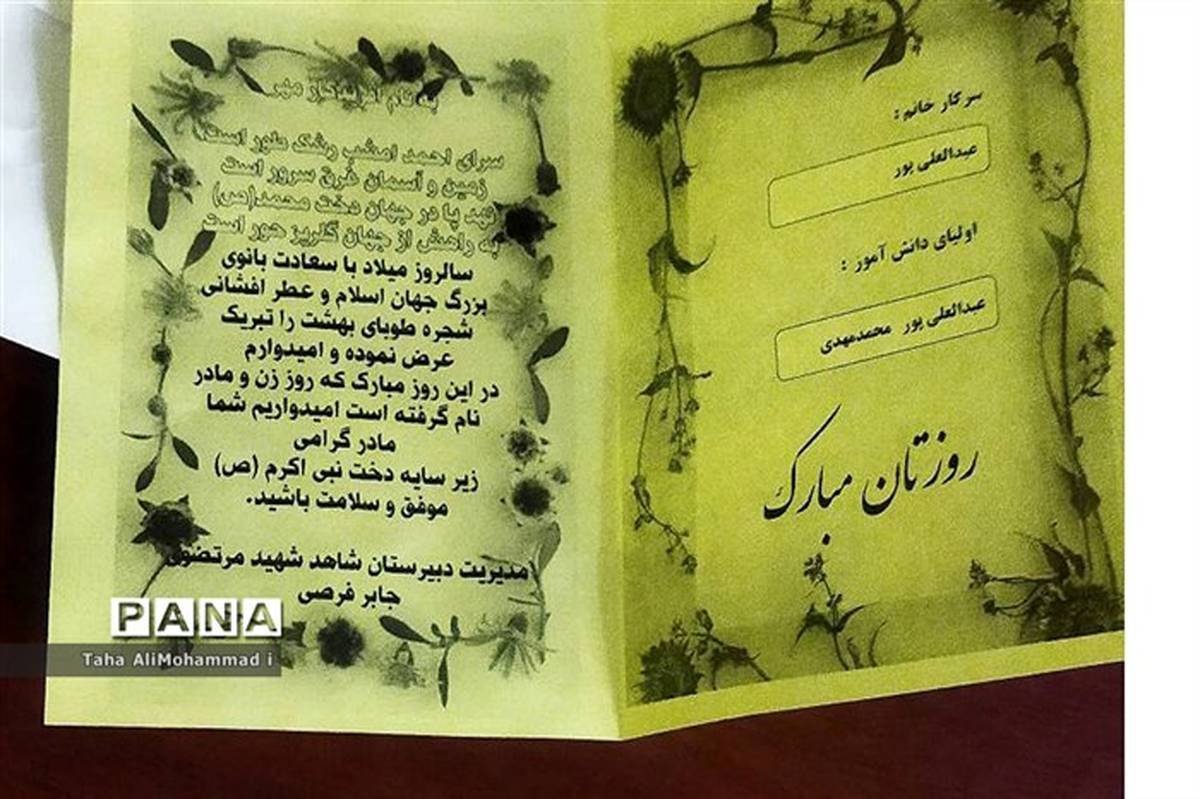 سرکار خانم :
عبدالعلی پور
اولیای دانش آموز :
عبدالعلی پور محمدمهدی
روزتان مبارک
به نام آفریدگار مهر
سرای احمد امشب رشک طور است
زمین و آسمان غرق سرور است
نهد پا در جهان دخت محمد(ص)
به راهش از جهان گلریز حور است
سالروز میلاد با سعادت بانوی
بزرگ جهان اسلام و عطر افشانی
شجره طوبای بهشت را تبریک
عرض نموده و امیدوارم
در این روز مبارک که روز زن و مادر
نام گرفته است امیدواریم شما
مادر گرامی
زیر سایه دخت نبی اکرم (ص)
موفق و سلامت باشید.
مدیریت دبیرستان شاهد شهید مرتضوی
جابر فرصی
PANA
Taha AliMohammad i